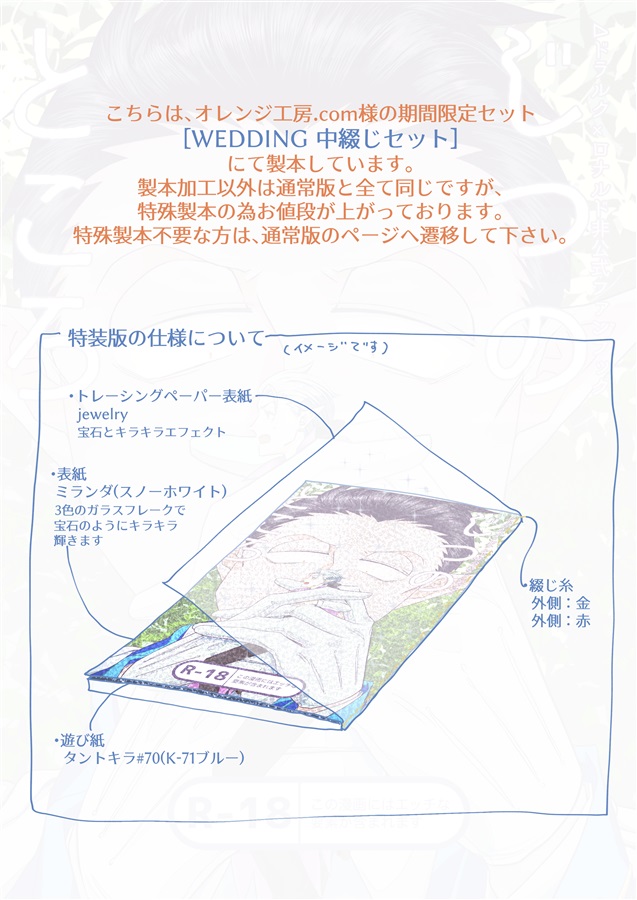 こちらは、オレンジ工房.com様の期間限定セット
［WEDDING 中綴じセット］
にて製本しています。
製本加工以外は通常版と全て同じですが、
特殊製本の為お値段が上がっております。
特殊製本不要な方は、通常版のページへ遷移して下さい。
特装版の仕様について
(イメージです)
・トレーシングペーパー表紙
jewelry
宝石とキラキラエフェクト
・表紙
ミランダ(スノーホワイト)
3色のガラスフレークで
宝石のようにキラキラ
輝きます
・綴じ糸
外側：金
外側：赤
R-18
・遊び紙
タントキラ#70(K-71ブルー)
R-18